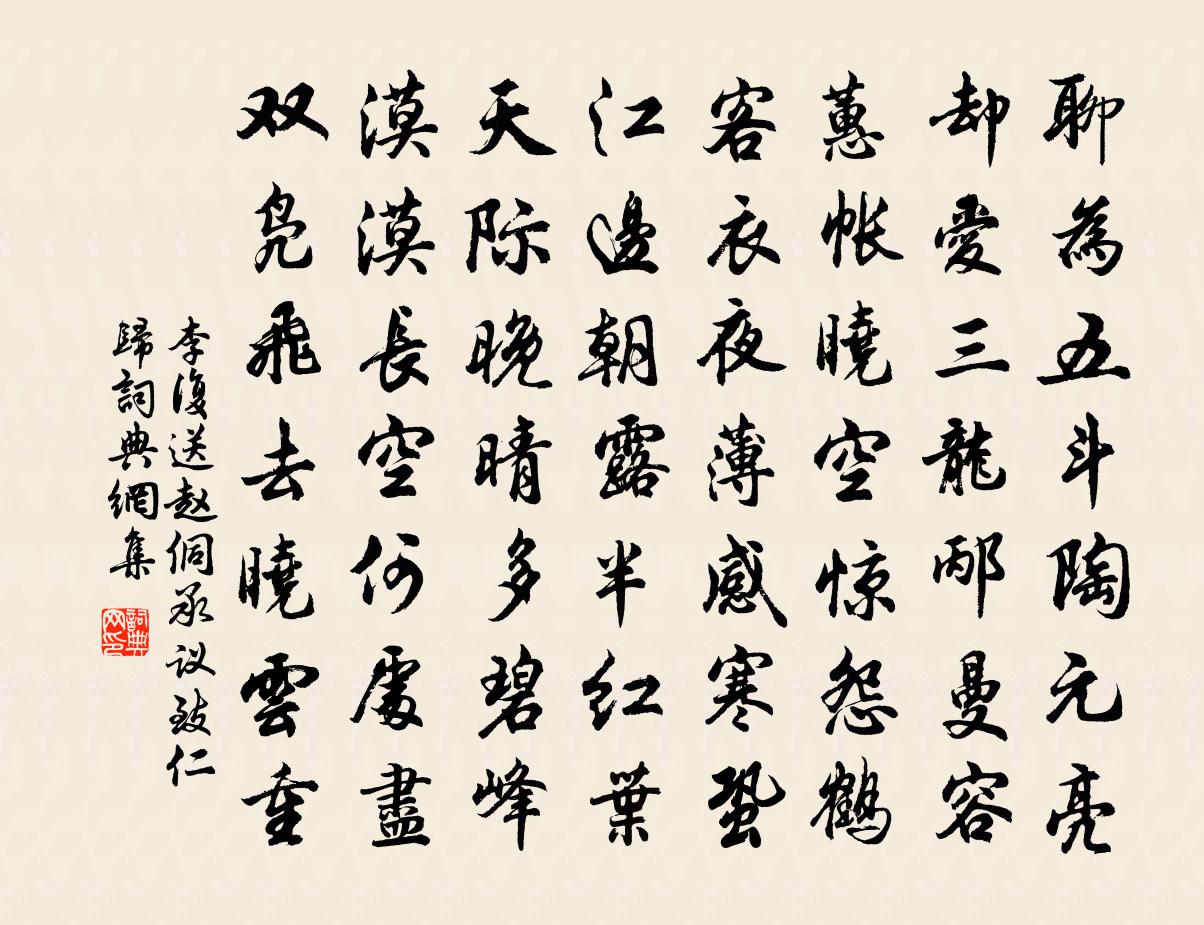 聊為五斗陶元亮
却愛三龍邴曼容
蕙帐曉空惊怨鶴
客衣夜薄感寒蛩
江邊朝露半红葉
天际晚晴多碧峰
漠漠長空何處盡
双凫飛去曉雲重
李復送赵侗承议致仁
歸詞典網集
詞典网印